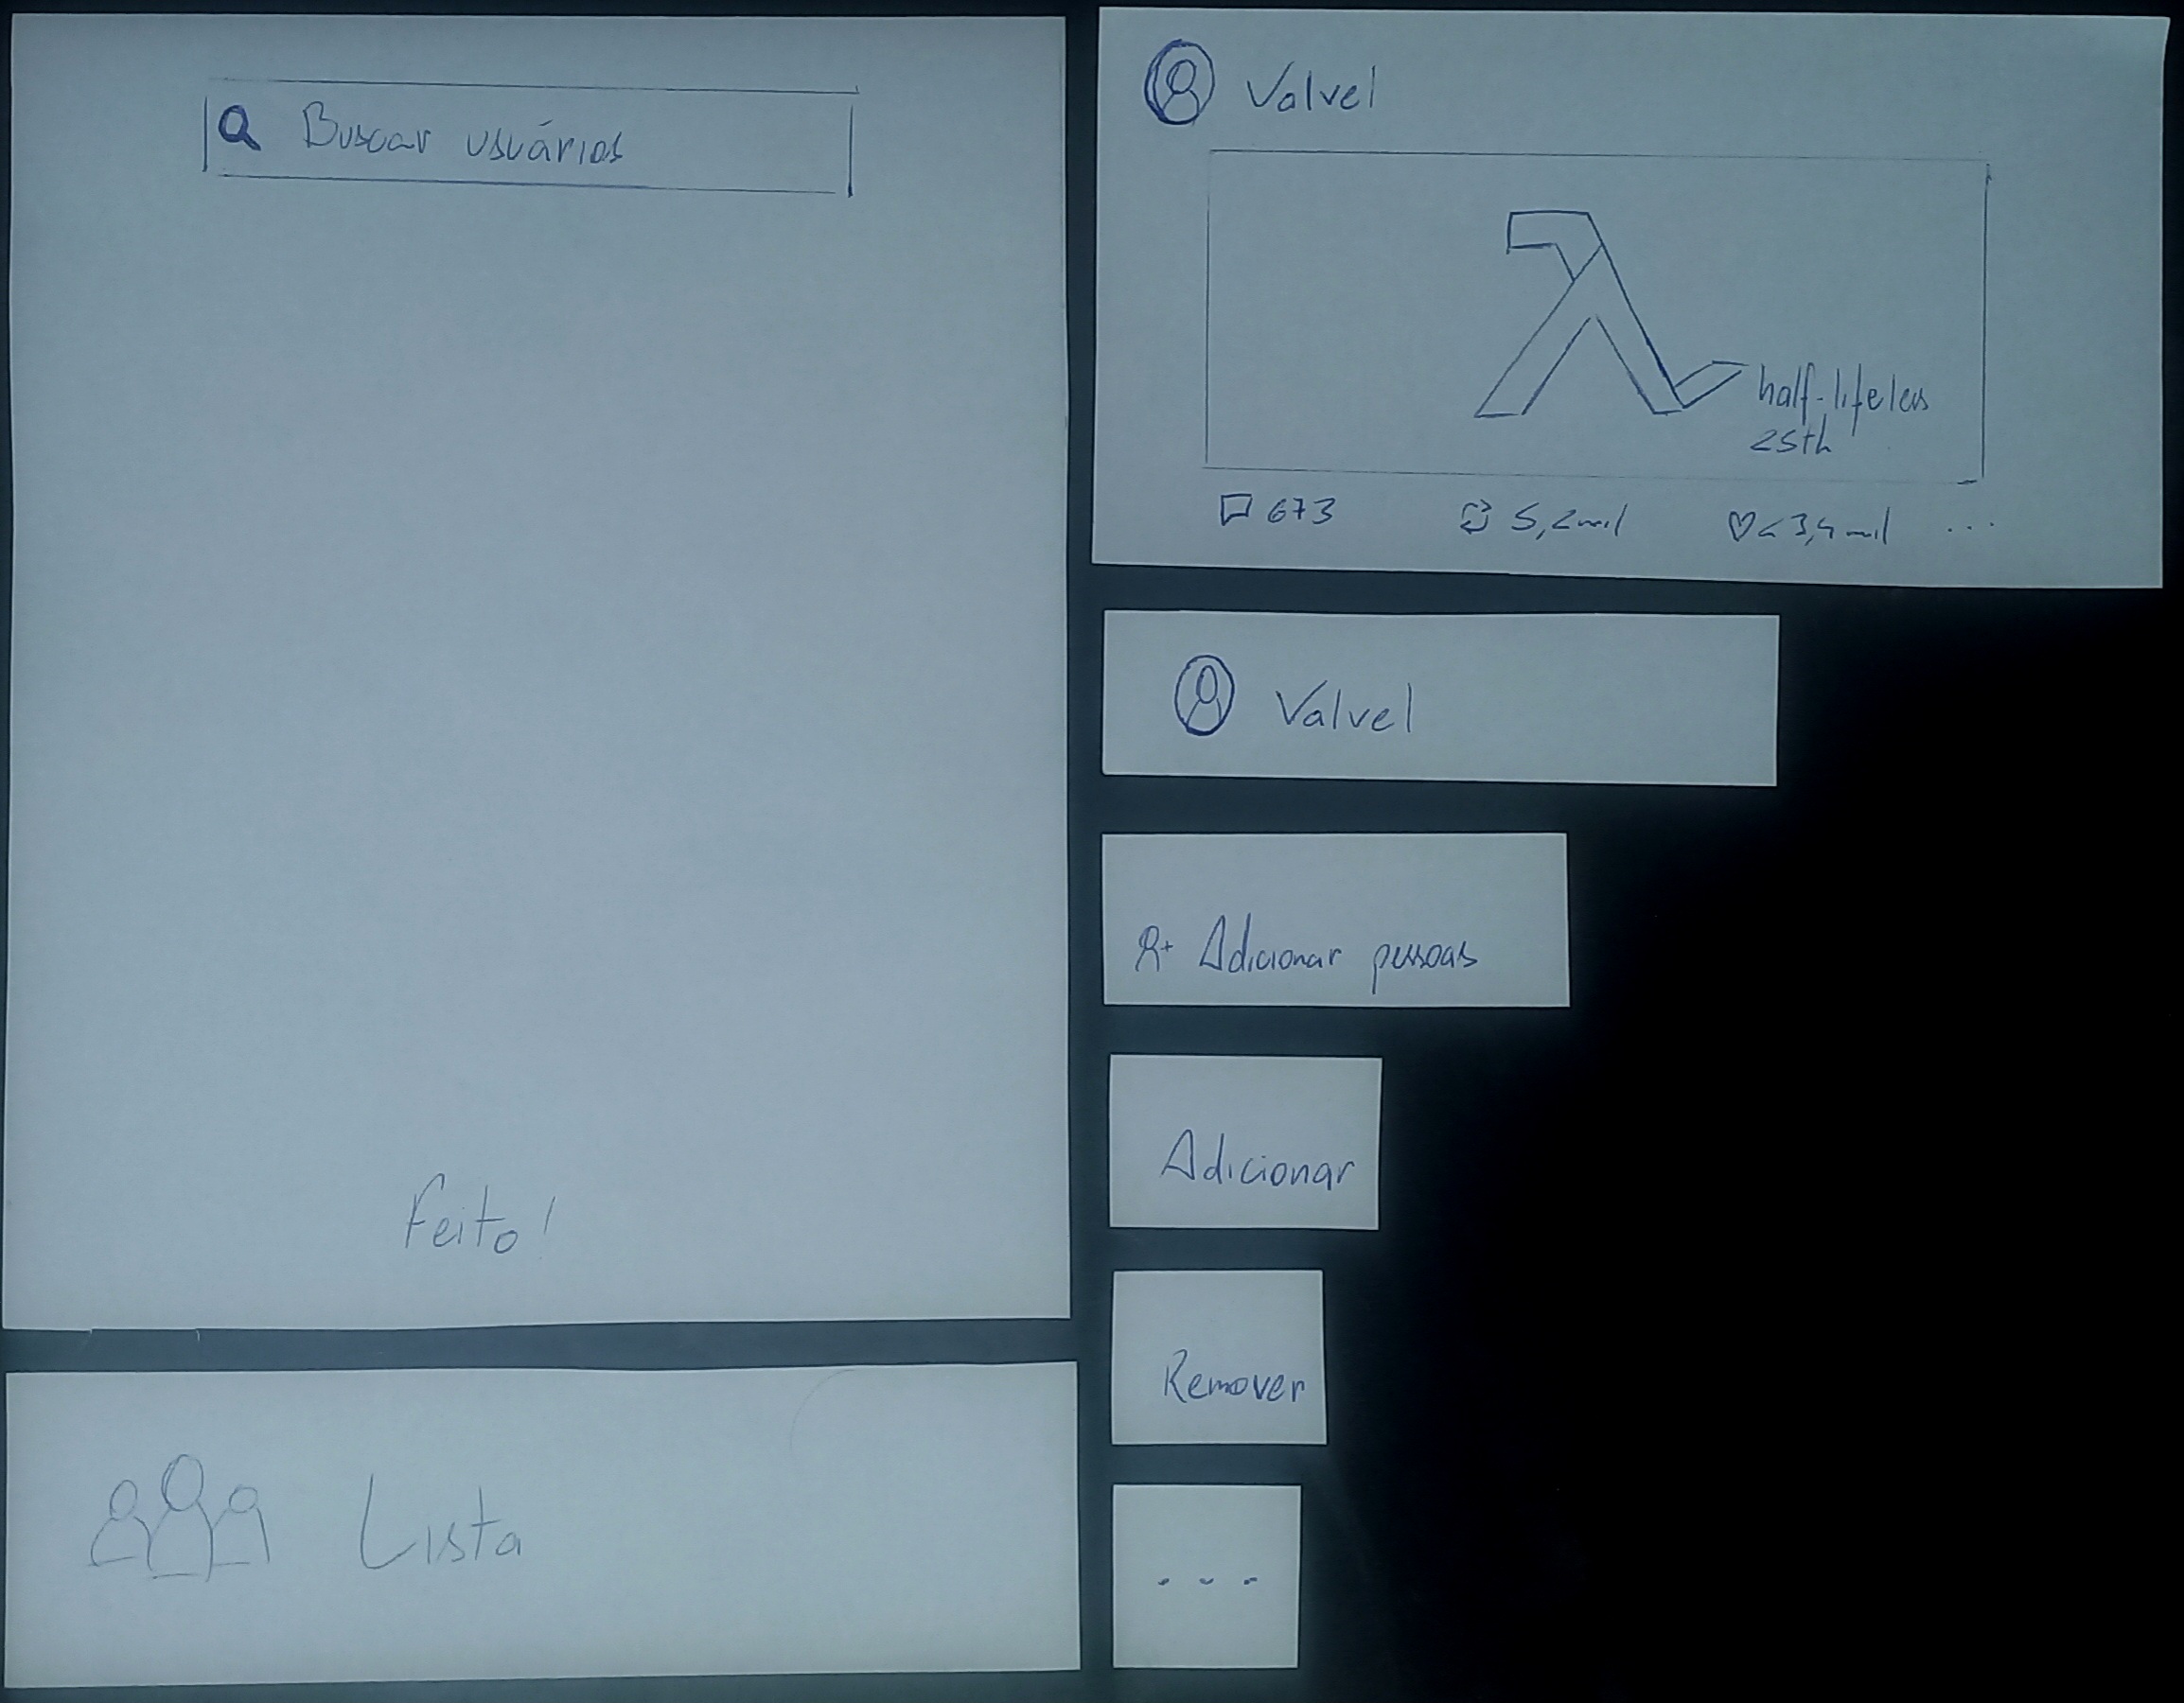 Buscar usuários
Feito!
Lista
Valvel
half-life
25th
673
5,2mil
3,4mil
...
Valvel
Adicionar pessoas
Adicionar
Remover
...